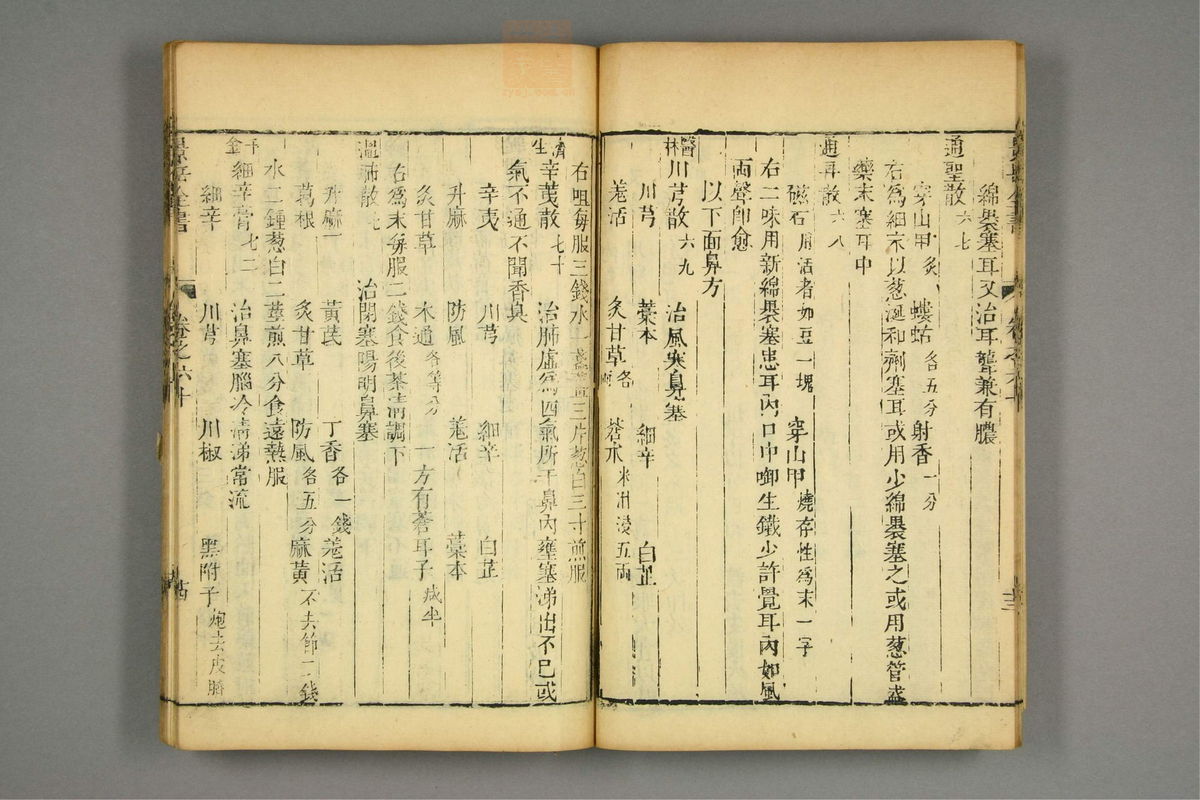 綿褁塞耳又治耳聾兼有膿
通聖散 六七
穿山甲 炙 螻蛄 各五分 射香 一分
右為細末以葱涎和劑塞耳或用少綿褁塞之或用葱管盛
藥末塞耳中
通耳散 六八
磁石 用活者如豆一塊 穿山甲 燒存性為末一字
右二味用新綿褁塞患耳內口中啣生鐵少許覺耳內如風
雨聲即愈
以下面鼻方
醫林川芎散 六九 治風寒鼻塞
川芎 藁本 細辛 白芷
羌活 炙甘草 各 蒼朮 米泔浸五兩
右咀每服三錢水一盞薑三片葱白三寸煎服
濟生辛荑散 七十 治肺虛為四氣所干鼻內壅塞涕出不已或
氣不通不聞香臭
辛夷 川芎 細辛 白芷
升麻 防風 羌活 藁本
炙甘草 木通 各等分 一方有蒼耳子 減半
右為末每服二錢食後茶清調下
溫肺散 七一 治閉塞陽明鼻塞
升麻 黃芪 丁香 各一錢 羌活
葛根 炙甘草 防風 各五分 麻黃 不去節二錢
水二鍾葱白二莖煎八分食遠熱服
千金細辛膏 七二 治鼻塞腦冷清涕常流
細辛 川芎 川椒 黑附子 炮去皮臍
景岳全書 卷之六十